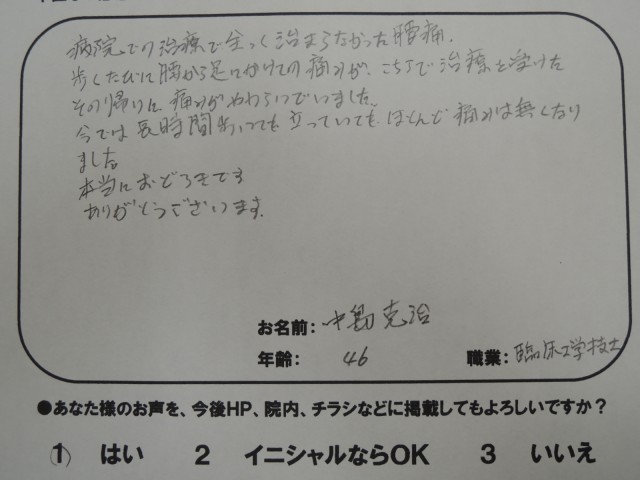 病院での治療で全く治まらなかった腰痛。
歩くたびに腰から足にかけての痛みが、こちらで治療を受けた
その帰りに痛みがやわらいでいました。
今では長時間歩いても立っていても、ほとんど痛みは無くなり
ました。
本当におどろきです
ありがとうございます。
お名前: 中島克治
年齢: 46 職業: 臨床工学技士
●あなた様のお声を、今後HP、院内、チラシなどに掲載してもよろしいですか？
1 はい 2 イニシャルならOK 3 いいえ